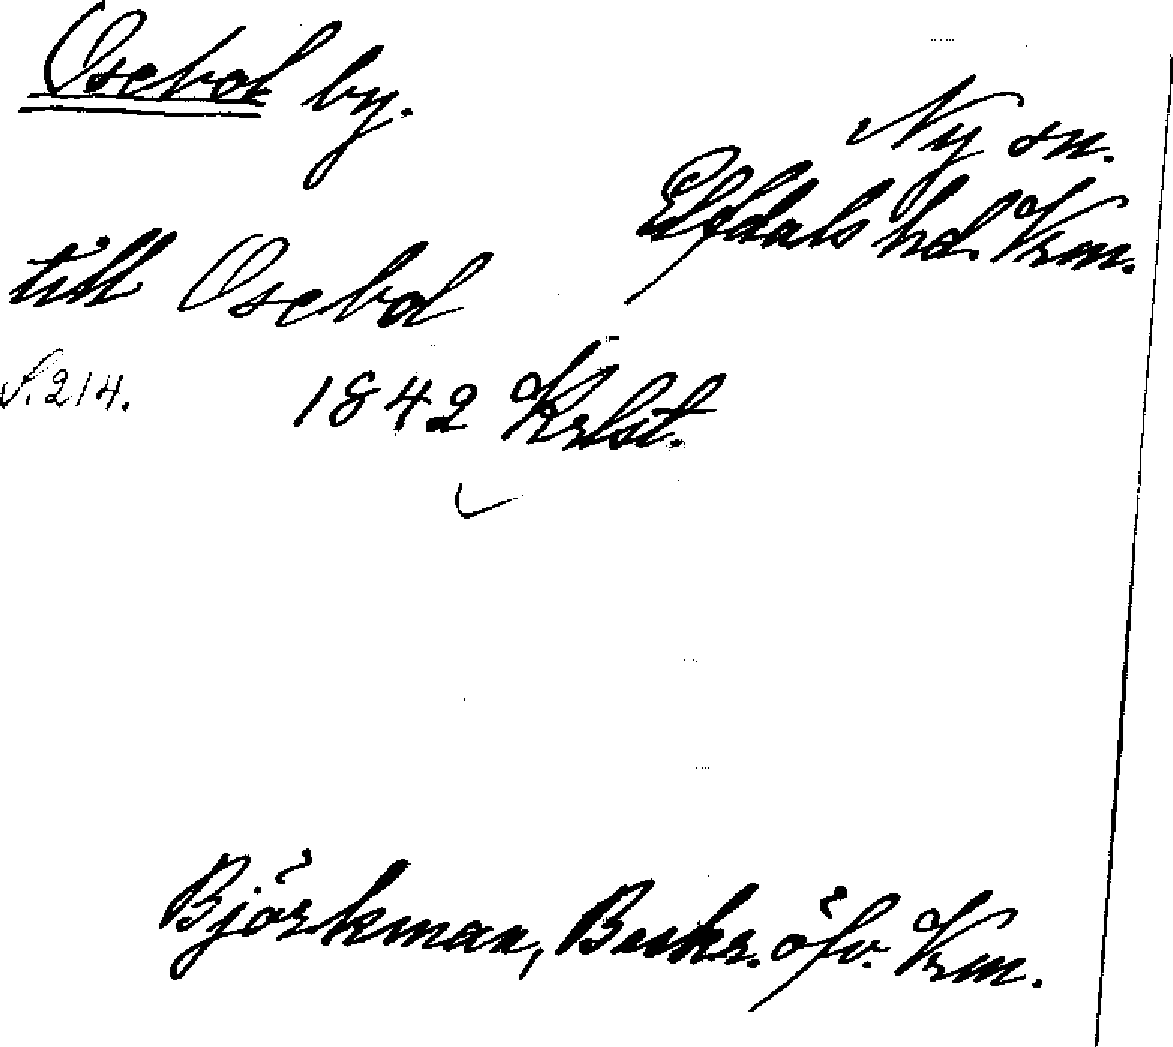 Osebol by.
Ny sn.
Elfdals hd. Vrm.
till Osebol
S. 214.
1842 Krlst.
Björkman, Beskr. öfv. Vrm.